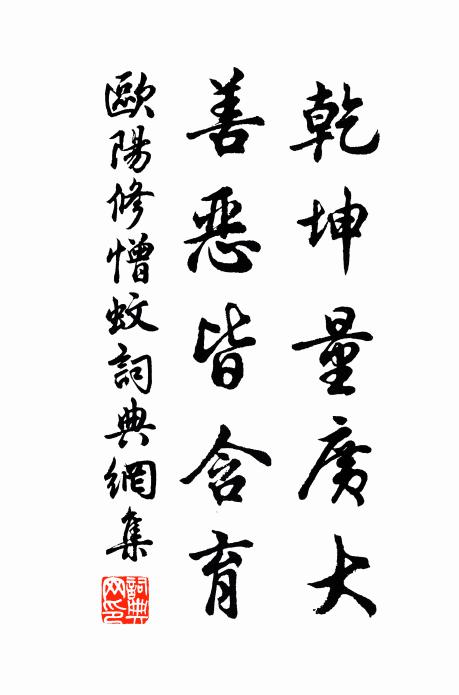 乾坤量廣大
善惡皆含育
歐陽修憎蚊詞典網集
詞典網印